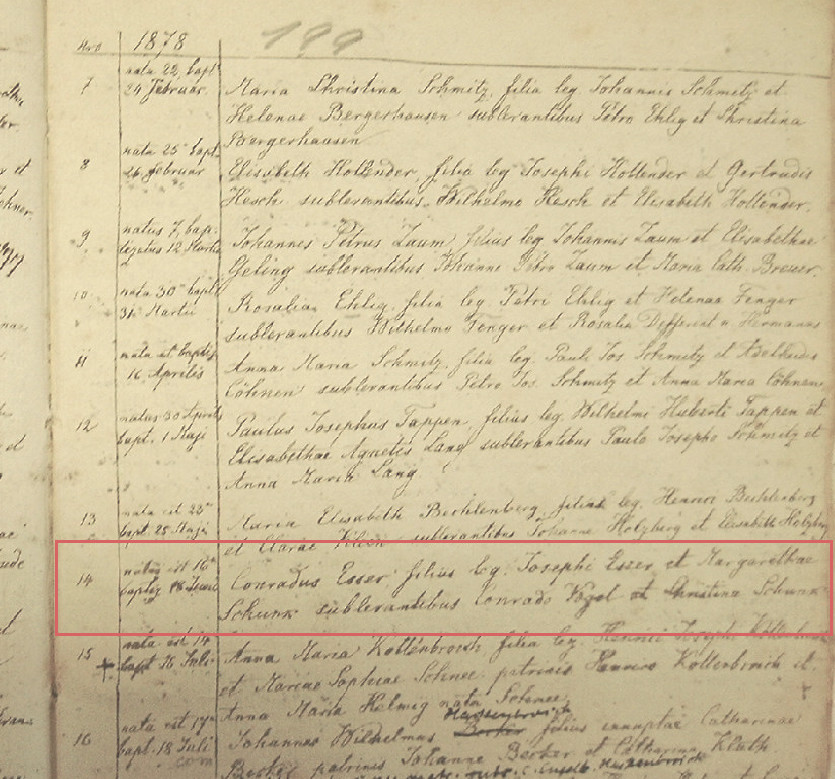 Nro 1878 199
7 nata 22, bapt. 24 Februar. Maria Christina Schmitz, filia leg. Johannis Schmitz et
Helenae Bergerhausen sublevantibus Petro Ehlig et Christina
Bergerhausen
8 nata 25 bapt. 26 Februar Elisabeth Hollender, filia leg Josephi Hollender et Gertrudis
Hesch sublevantibus Wilhelmo Hesch et Elisabeth Hollender.
9 natus 7, bap- tizatus 12 Martii Johannes Petrus Zaum, filius leg. Johannis Zaum et Elisabethae
Geling sublevantibus Johanne Petro Zaum et Maria Cath. Breuer.
10 nata 30 bapt 31 Martii Rosalia Ehlig, filia leg. Petri Ehlig et Helenae Fenger
sublevantibus Wilhelmo Fenger et Rosalia Hermanns
11 nata et bapt. 16 Aprilis Anna Maria Schmitz, filia leg. Pauli Jos Schmitz et Adelheidis
Cöhnen sublevantibus Petro Jos. Schmitz et Anna Maria Cöhnen
12 natus 30 Aprilis bapt. 1 Maji Paulus Josephus Tappen, filius leg. Wilhelmi Huberti Tappen et
Elisabethae Agnetis Lang sublevantibus Paulo Josepho Schmitz et
Anna Maria Lang
13 nata est 22 bapt 25 Maji Maria Elisabeth Bechlenberg, filia leg. Henrici Bechlenberg
et Clarae sublevantibus Johanne Holzberg et Elisabeth Holzberg
14 natus est 16 baptiz 18 Conradus Esser, filius leg. Josephi Esser et Margarethae
Schunk sublevantibus Conrado Vogel et Christina Schunk
15 nata est 14 bapt 18 Juli Anna Maria Kottenbroich, filia leg. Henrici Josephi Kottenbroich
et Mariae Sophiae Schnee patrinis Henrico Kottenbroich et
Anna Maria Helmig nata Schnee
16 nata est 17 bapt. 18 Juli Johannes Wilhelmus filius innuptae Catharinae
patrinis Johanne Berker et Catharina Kluth